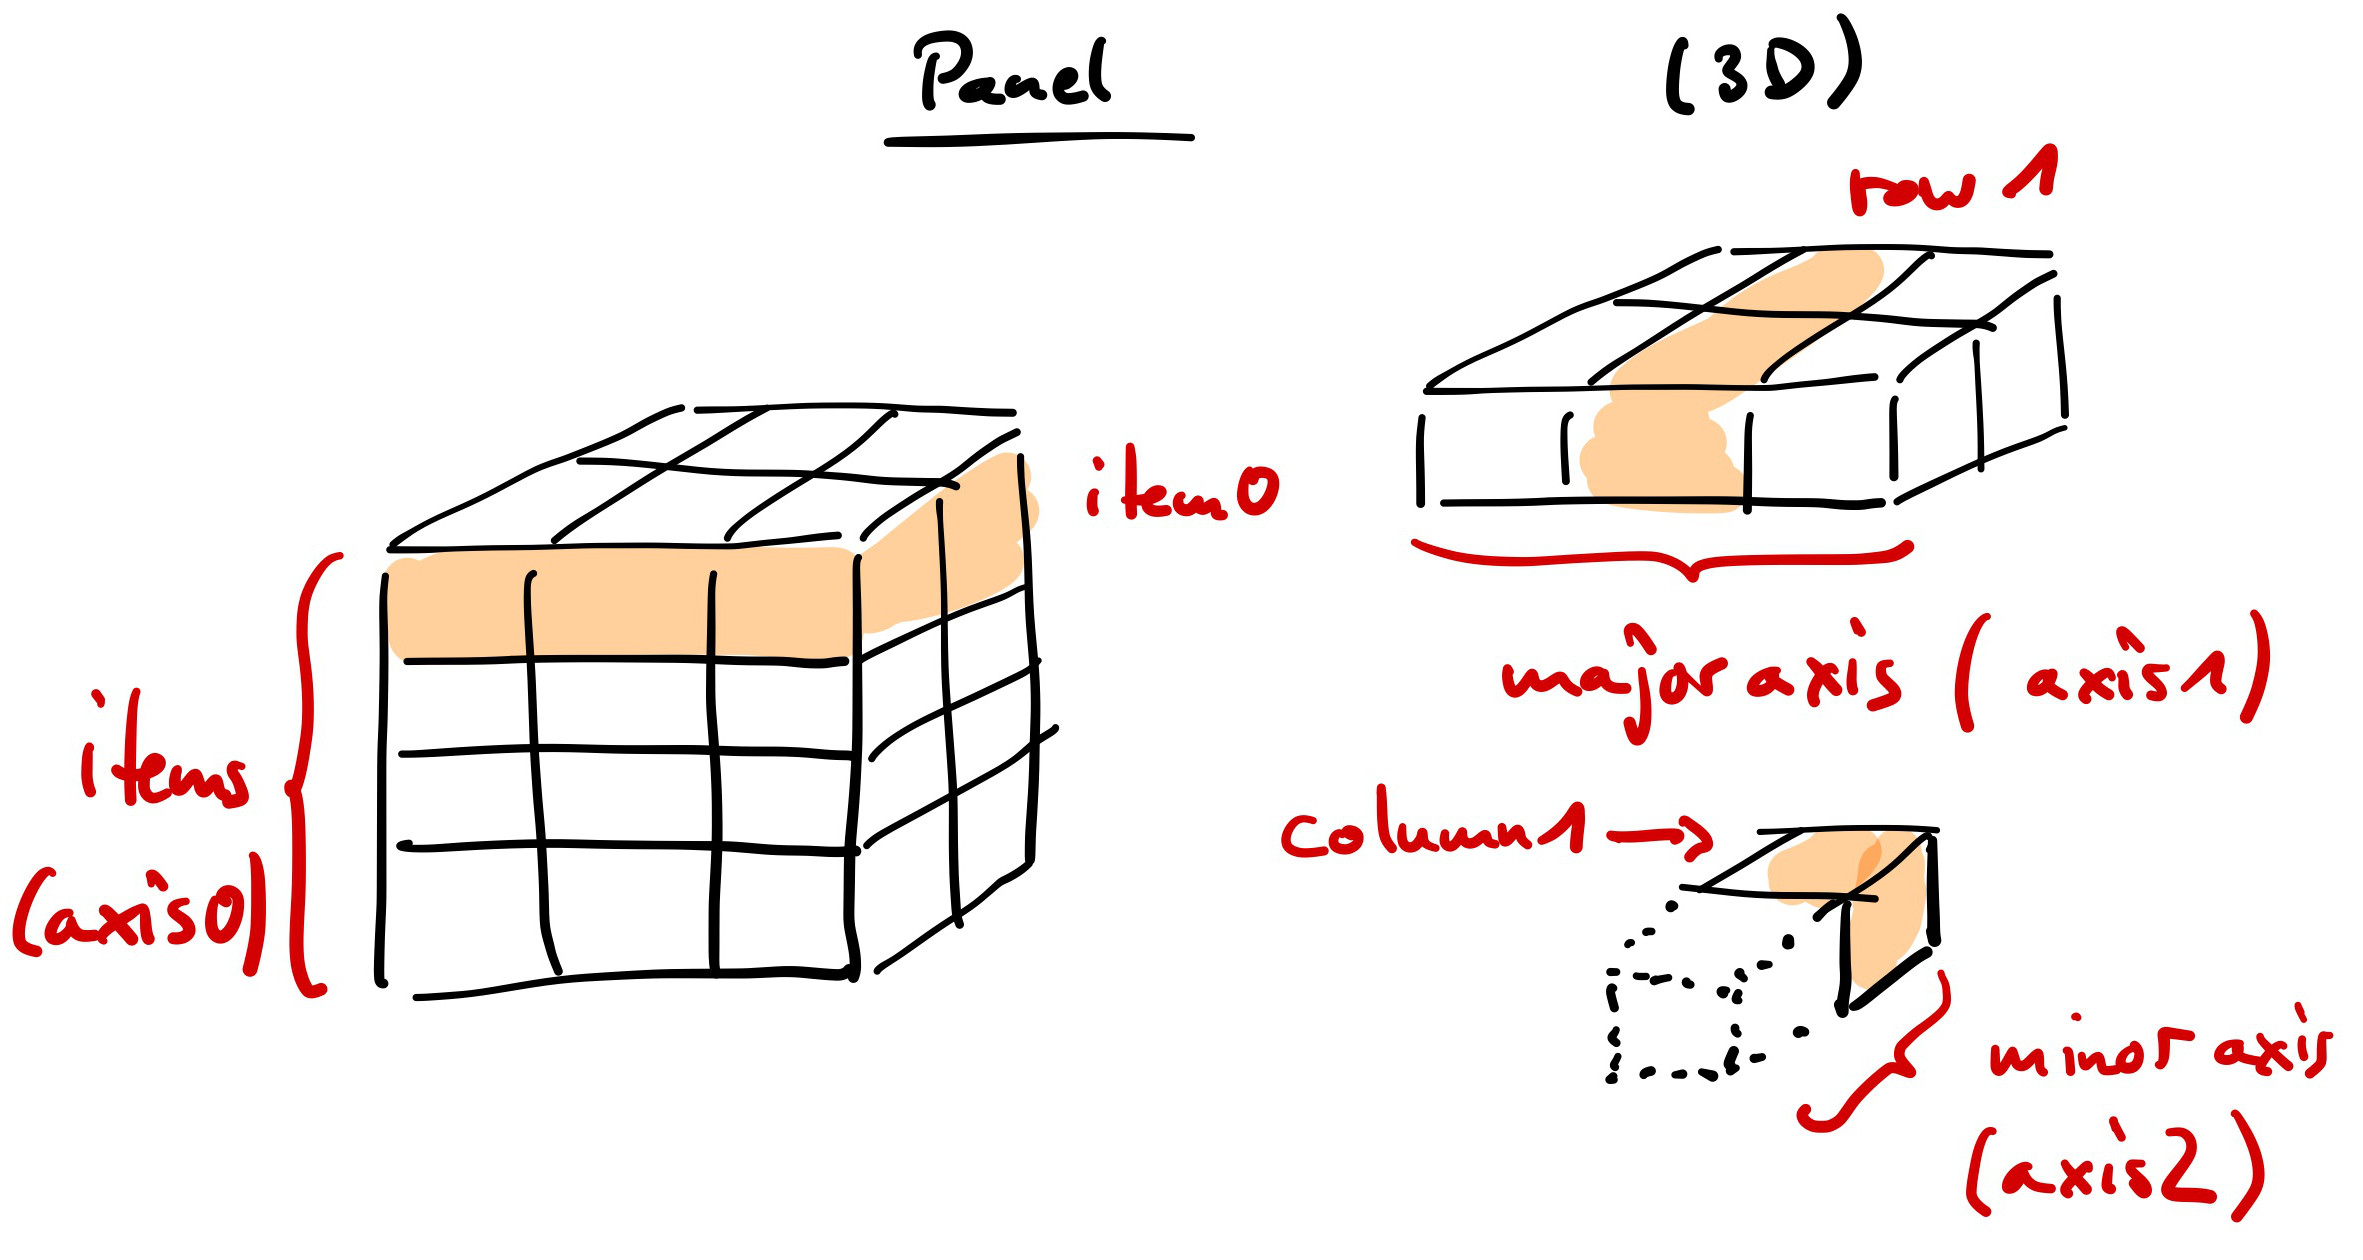 Panel (3D)
row 1
item 0
items
(axis 0)
major axis (axis 1)
column 1
minor axis
(axis 2)